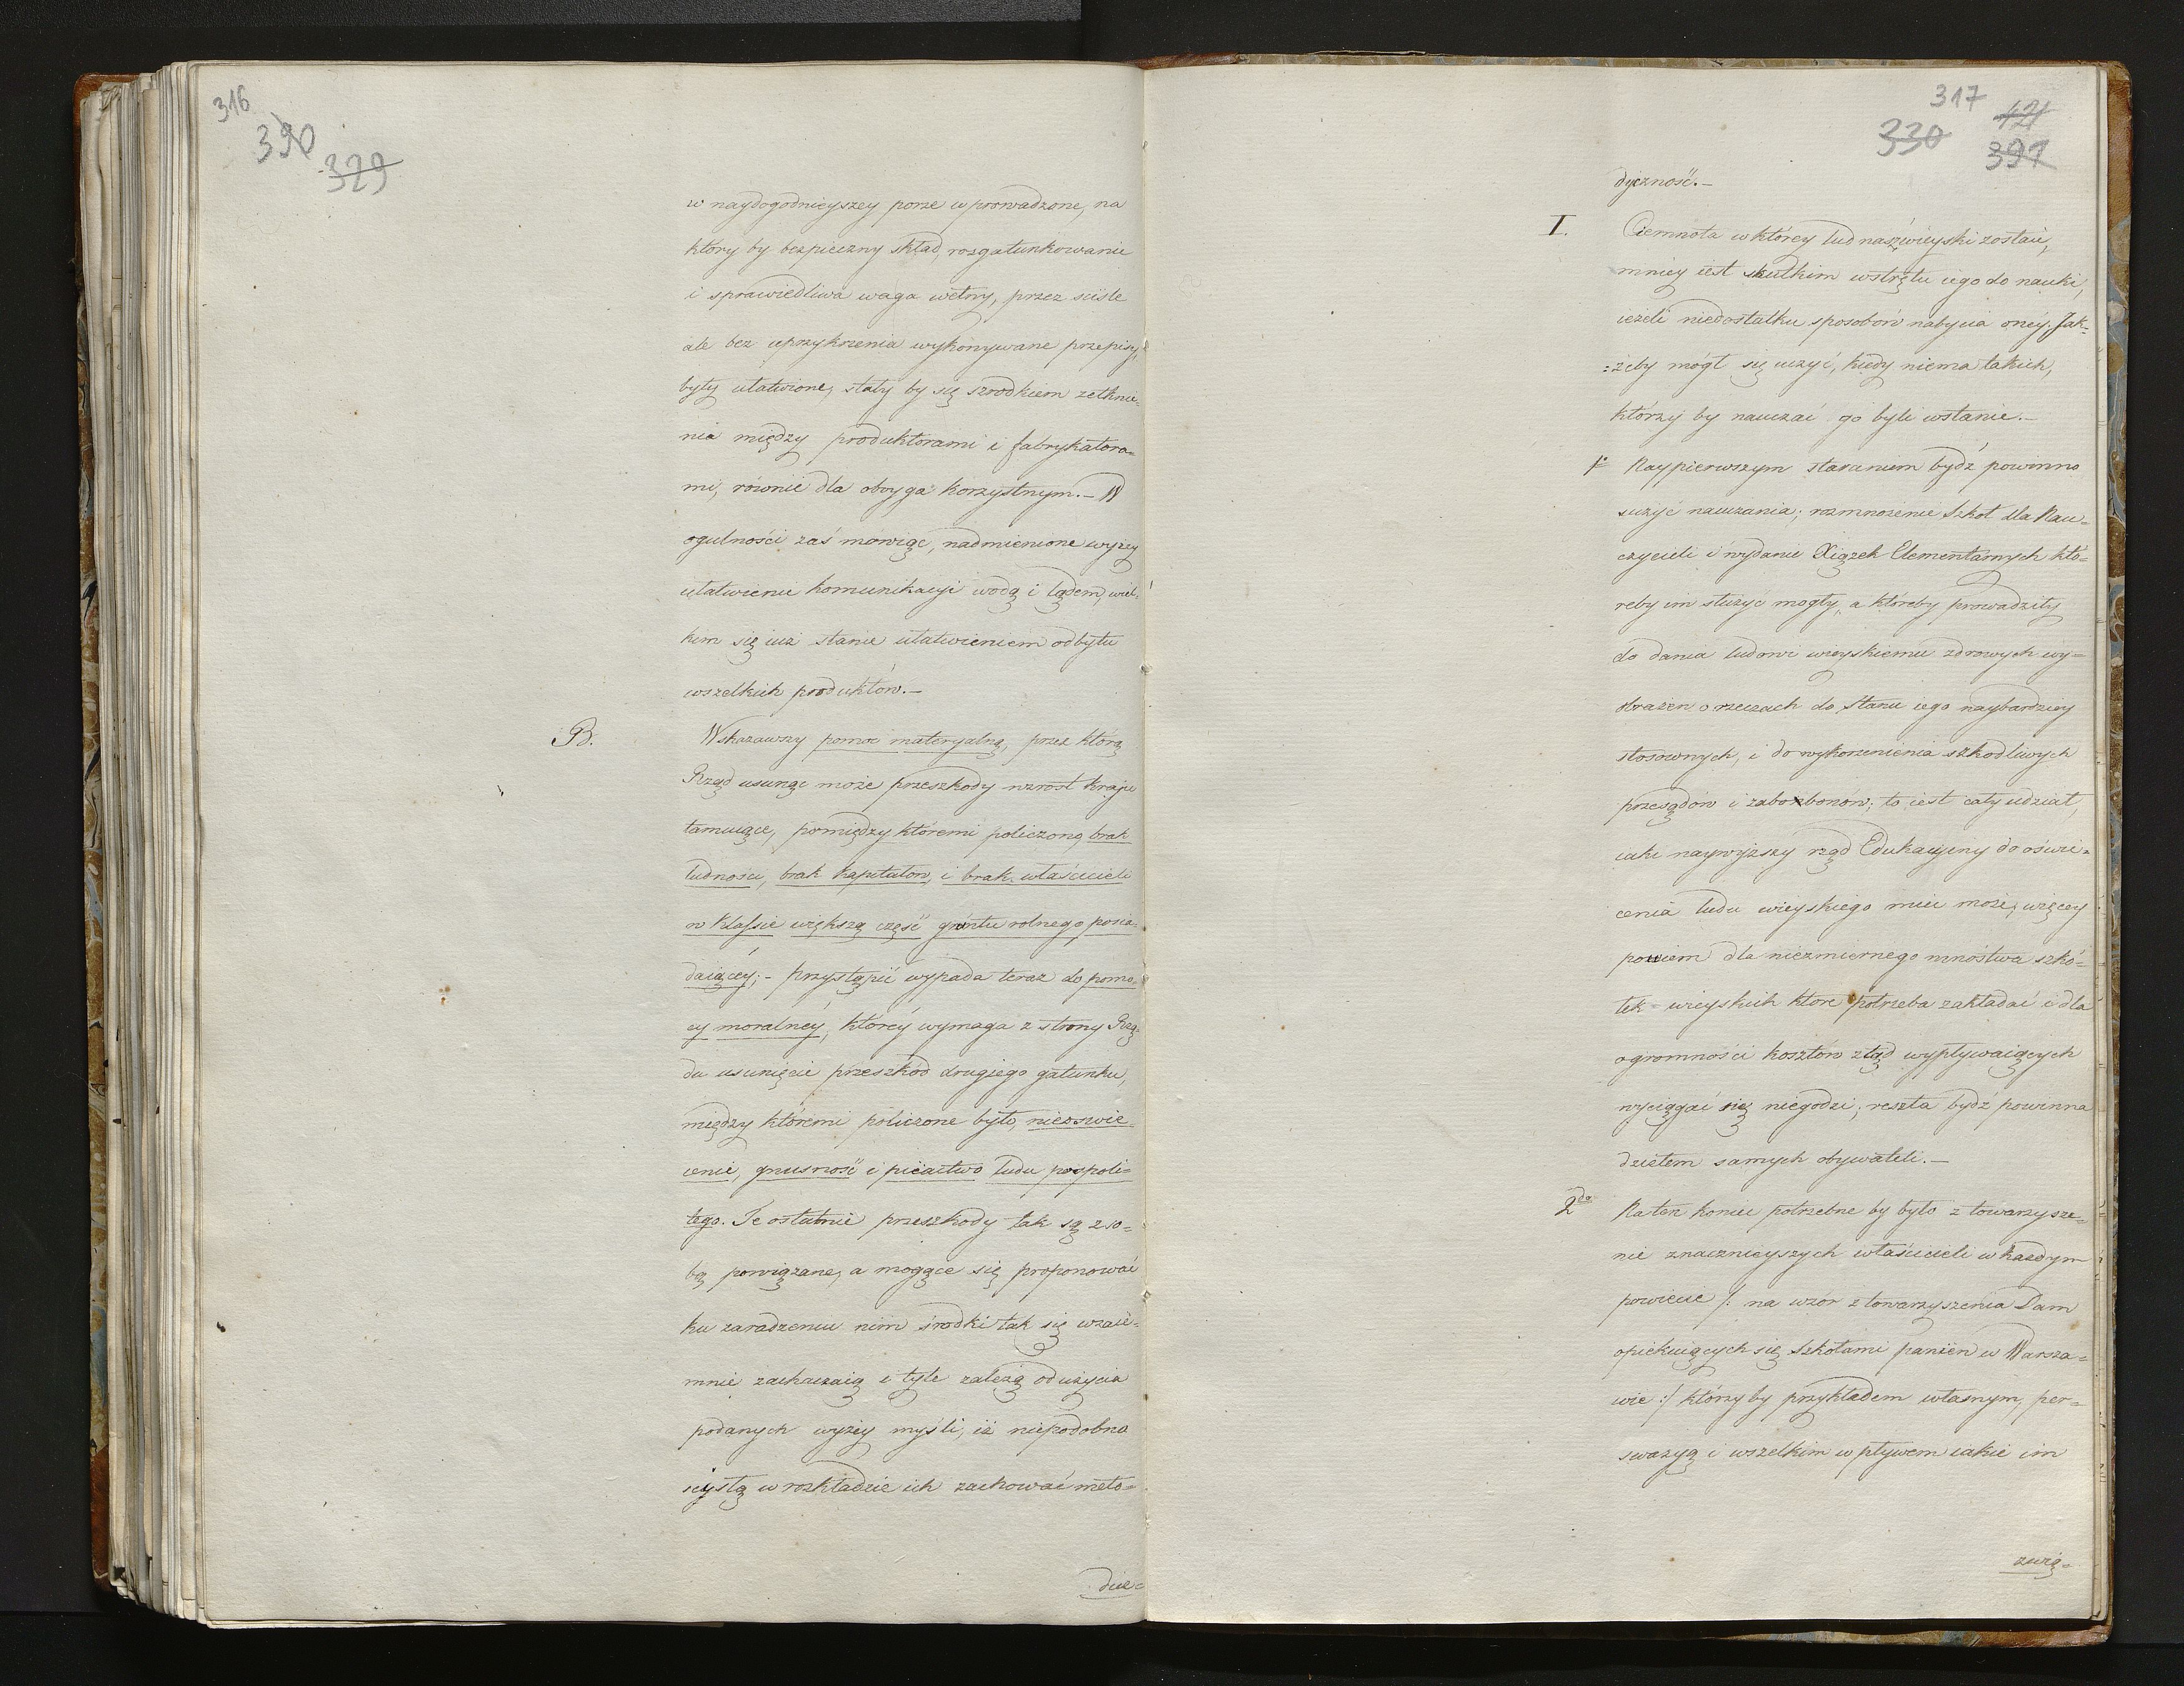 316
390
329
w naydogodnieyszey porze wprowadzone, na
który by bezpieczny skład, rozgatunkowanie
i sprawiedliwa waga wełny, przez scisłe
ale bez uprzykrzenia wykonywane przepisy,
były ułatwione, stały by się srzodkiem zetknie-
nia między produktorami i fabrykatora-
mi, równie dla oboyga korzystnym.- W
ogulności zaś mówiąc, nadmienione wyżey
ułatwienie komunikacyi wodą i lądem, wiel-
kim się iuż stanie ułatwieniem odbytu
wszelkich produktów.-
B.
Wskazawszy pomoc materyalną, przez którą
Rząd usunąc może przeszkody wzrost kraju
tamuiące, pomiędzy któremi policzono, brak
ludności, brak kapitałow, i brak właścicieli
w klassie większą część gruntu rolnego posia-
daiącey;- przystąpić wypada teraz do pomo-
cy moralnéy, któréy wymaga z strony Rzą-
du usunięcie przeszkód drugiego gatunku,
między któremi policzone było, nieoswie-
cenie, gnusność i piiactwo ludu pospoli-
tego. Te ostatnie przeszkody tak są z so-
bą powiązane, a mogące się proponować
ku zaradzeniu nim środki tak się wzaie-
mnie zachaczaią i tyle zależą od użycia
podanych wyżey myśli, iż niepodobna
scisłą w rozkładzie ich zachować meto-
dyc-
317
421
330
391
dyczność.-
I.
Ciemnota w którey lud nasz wieyski zostaie,
mniey iest skutkiem wstrętu iego do nauki,
ieżeli niedostatku sposobów nabycia onéy. Jak-
:żeby mógł się uczyć, kiedy niema takich,
którzy by nauczac go byli wstanie.-
1o
Naypierwszym staraniem bydź powinno
nauczania; rozmnożenie Szkół dla Nau-
czycieli i wydanie Xiążek Elementarnych któ-
reby im służyć mogły, a któreby prowadziły
do dania ludowi wieyskiemu zdrowych wy-
obrażen o rzeczach do stanu iego naybardziey
stosownych, i do wykorzenienia szkodliwych
przesądów i zabobonów; to iest cały udział,
iaki naywyższy rząd Edukacyiny do oświe-
cenia ludu wieyskiego mieć może; więcey
powiem dla niezmiernego mnóstwa szkó-
łek wieyskich ktore potrzeba zakładać i dla
ogromności kosztów ztąd wypływaiących
wyciągać się niegodzi; reszta bydź powinna
dziełem samych obywateli.-
2do
Na ten koniec potrzebne by było z towarzysze-
nie znacznieyszych właścicieli w każdym
powiecie /: na wzór z towarzyszenia Dam
opiekuiących się szkołami panien w Warsza-
wie :/ którzy by przykładem własnym, per-
swazyą i wszelkim wpływem iakie im
zwią-